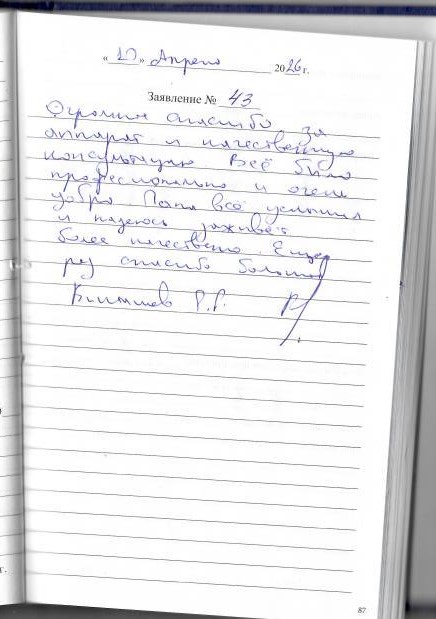 « 10 » Апрель 2026 г.
Заявление № 43
Огромное спасибо за
аппарат и качественную
консультацию Всё было
профессионально и очень
добро. Папа всё услышал
и надеюсь заживёт
более качествено Еще
раз спасибо большое
Р.Р.
87